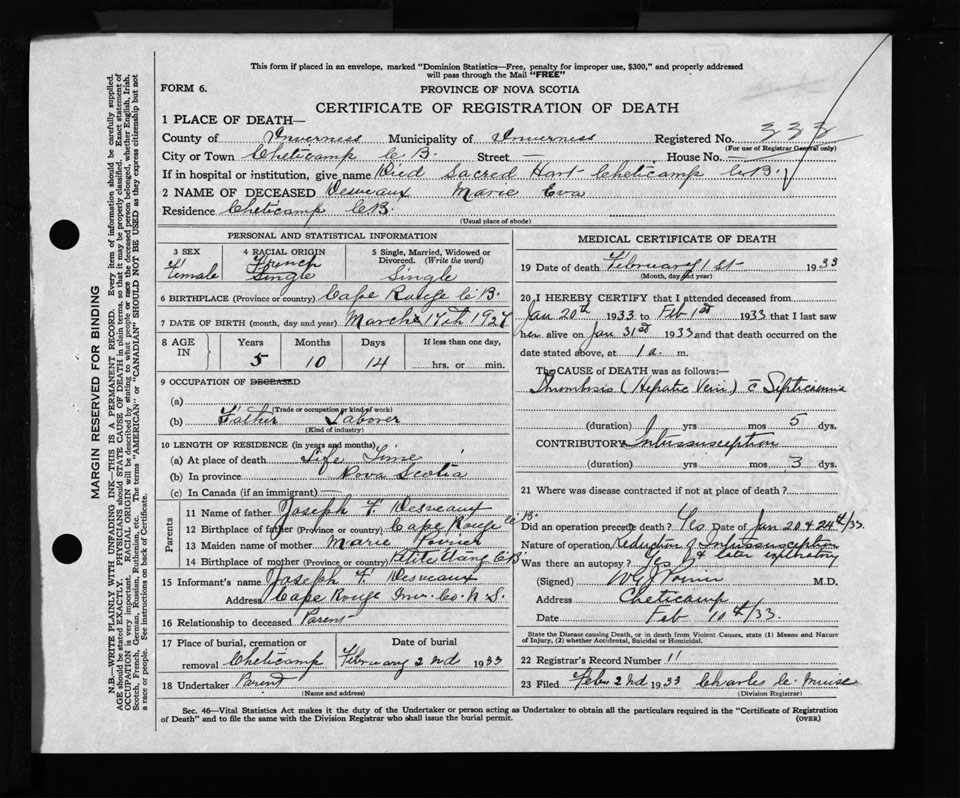 This form if placed in an envelope, marked "Dominion Statistics—Free, penalty for improper use, $300," and properly addressed
will pass through the Mail "FREE"
FORM 6.
PROVINCE OF NOVA SCOTIA
CERTIFICATE OF REGISTRATION OF DEATH
1 PLACE OF DEATH—
County of Inverness Municipality of Inverness Registered No. 333
(For use of Registrar General only)
City or Town Cheticamp C.B. Street — House No. —
If in hospital or institution, give name Died Sacred Hart Cheticamp C.B.
2 NAME OF DECEASED Desveaux Marie Eva
Residence Cheticamp CB.
(Usual place of abode)
PERSONAL AND STATISTICAL INFORMATION
3 SEX
Female
4 RACIAL ORIGIN
French
Single
5 Single, Married, Widowed or
Divorced. (Write the word)
Single
6 BIRTHPLACE (Province or country) Cape Rouge C.B.
7 DATE OF BIRTH (month, day and year) March 17th 1927
8 AGE IN
Years Months Days If less than one day,
5 10 14 hrs. or min.
9 OCCUPATION OF DECEASED
(a)
(Trade or occupation or kind of work)
(b) Father Laborer
(Kind of industry)
10 LENGTH OF RESIDENCE (in years and months)
(a) At place of death Life Time
(b) In province Nova Scotia
(c) In Canada (if an immigrant) —
Parents
11 Name of father Joseph F. Desveaux
12 Birthplace of father (Province or country) Cape Rouge C.B.
13 Maiden name of mother Marie Poirier
14 Birthplace of mother (Province or country) C.B.
15 Informant's name Joseph F. Desveaux
Address Cape Rouge Inv. Co. N.S.
16 Relationship to deceased Parent
17 Place of burial, cremation or
removal Cheticamp
Date of burial
February 2nd 1933
18 Undertaker Parent
(Name and address)
MEDICAL CERTIFICATE OF DEATH
19 Date of death February 1st 1933
(Month, day and year)
20 I HEREBY CERTIFY that I attended deceased from
Jan 20th 1933 to Feb 1st 1933 that I last saw
her alive on Jan 31st 1933 and that death occurred on the
date stated above, at 1 a. m.
The CAUSE of DEATH was as follows:—
Thrombosis (Hepatic Vein) c̄ Septicaemia
(duration) yrs mos 5 dys.
CONTRIBUTORY Intussusception
(duration) yrs mos 3 dys.
21 Where was disease contracted if not at place of death?
Did an operation precede death? Yes Date of Jan 20 & 24th/33.
Nature of operation Reduction of Intussusception
& later exploratory
Was there an autopsy? Yes
(Signed) Poirier M.D.
Address Cheticamp
Date Feb 10th/33.
State the Disease causing Death, or in death from Violent Causes, state (1) Means and Nature
of Injury, (2) whether Accidental, Suicidal or Homicidal.
22 Registrar's Record Number 11
23 Filed Feb 2nd 1933 Charles C. Muise
(Division Registrar)
Sec. 46—Vital Statistics Act makes it the duty of the Undertaker or person acting as Undertaker to obtain all the particulars required in the "Certificate of Registration
of Death" and to file the same with the Division Registrar who shall issue the burial permit.
(OVER)
MARGIN RESERVED FOR BINDING
N.B.—WRITE PLAINLY WITH UNFADING INK—THIS IS A PERMANENT RECORD. Every item of information should be carefully supplied.
AGE should be stated EXACTLY. PHYSICIANS should STATE CAUSE OF DEATH in plain terms, so that it may be properly classified. Exact statement of
OCCUPATION is very important. RACIAL ORIGIN will be described by stating to what people or race the deceased person belonged, whether English, Irish,
Scotch, French, German, Russian, Ruthenian, etc. The terms "AMERICAN" or "CANADIAN" SHOULD NOT BE USED as they express citizenship but not
a race or people. See instructions on back of Certificate.